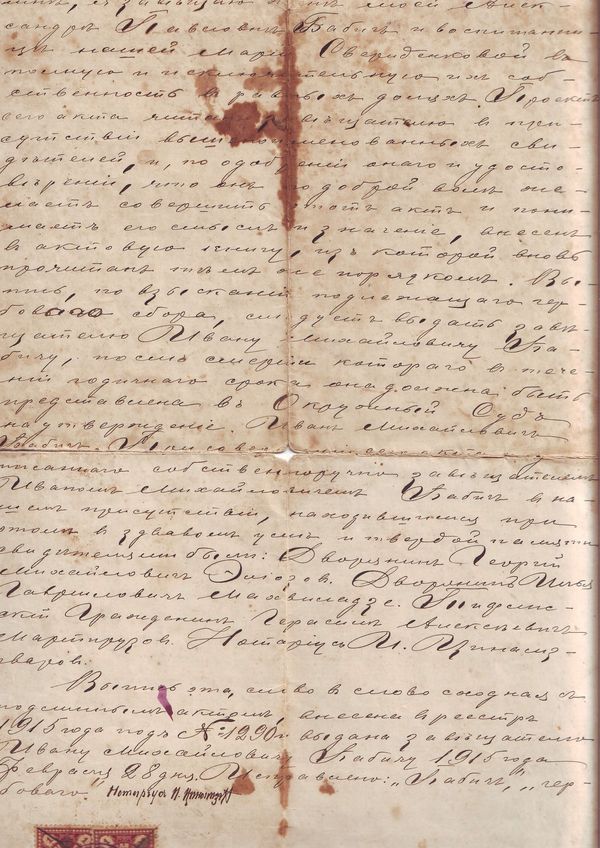 завѣщаю женѣ моей Алек-
сандрѣ Павловнѣ Бабичъ и воспитанни-
цѣ нашей Маріи Свериденковой въ
полную и исключительную ихъ соб-
ственность въ равныхъ доляхъ. Проектъ
сего акта читанъ завѣщателю въ при-
сутствіи вышепоименованныхъ сви-
дѣтелей, и, по одобреніи онаго и удосто-
вѣреніи, что онъ по доброй волѣ же-
лаетъ совершить этотъ актъ и пони-
маетъ его смыслъ и значеніе, внесенъ
въ актовую книгу, изъ которой вновь
прочитанъ тѣмъ же порядкомъ. Вы-
пись, по взысканіи подлежащаго гер-
боваго сбора, слѣдуетъ выдать завѣ-
щателю Ивану Михайловичу Ба-
бичу, послѣ смерти котораго въ тече-
ніи годичнаго срока она должна быть
представлена въ Окружный Судъ
на утвержденіе. Иванъ Михайловичъ
Бабичъ. При совершеніи сего акта и
писаннаго собственноручно завѣщателемъ
Иваномъ Михайловичемъ Бабичъ въ на-
шемъ присутствіи, находившимся при
этомъ въ здравомъ умѣ и твердой памяти
свидѣтелями были: Дворянинъ Георгій
Михайловичъ Дворянинъ Илья
Гавриловичъ Махвиладзе. Тифлис-
скій Гражданинъ Герасимъ Алексѣевичъ
Мартирузов. Нотаріусъ И. Цинамз-
гваров.
Выпись эта, слово въ слово сходная съ
подлиннымъ актомъ, внесена въ реестръ
1915 года подъ № 1290 и выдана завѣщателю
Ивану Михайловичу Бабичу 1915 года
Февраля 28 дня. Исправлено: „Бабичъ", „гер-
боваго.
Нотаріусъ И.